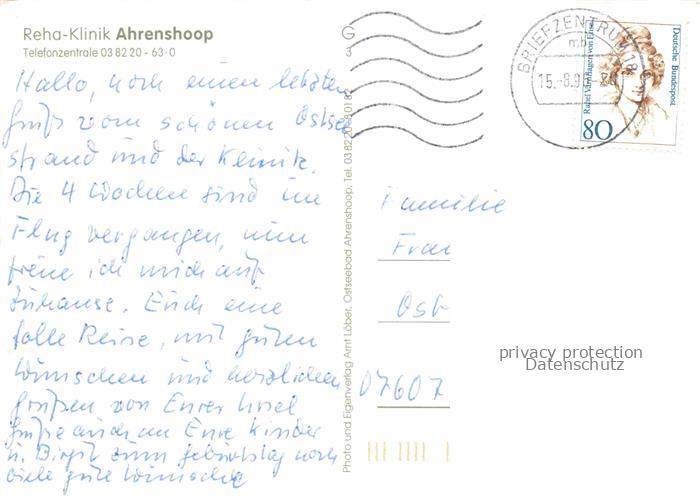 Reha-Klinik Ahrenshoop
Telefonzentrale 03 82 20 - 63·0
Hallo, noch einen letzten
Gruß vom schönen Ostsee
strand und der Klinik.
Die 4 Wochen sind im
Flug vergangen, nun
freue ich mich auf
Zuhause. Euch eine
tolle Reise, mit guten
Wünschen und herzlichen
Grüßen von Eurer Ursel
Grüße auch an Eure Kinder
u. Birgit zum Geburtstag noch
viele gute Wünsche
Photo und Eigenverlag Arnt Löber, Ostseebad Ahrenshoop, Tel. 03 82 20
G
3
BRIEFZENTRUM 18
mb
15.-8.9
Deutsche Bundespost
Rahel Varnhagen von Ense
80
Familie
Frau
Ost
07607
privacy protection
Datenschutz